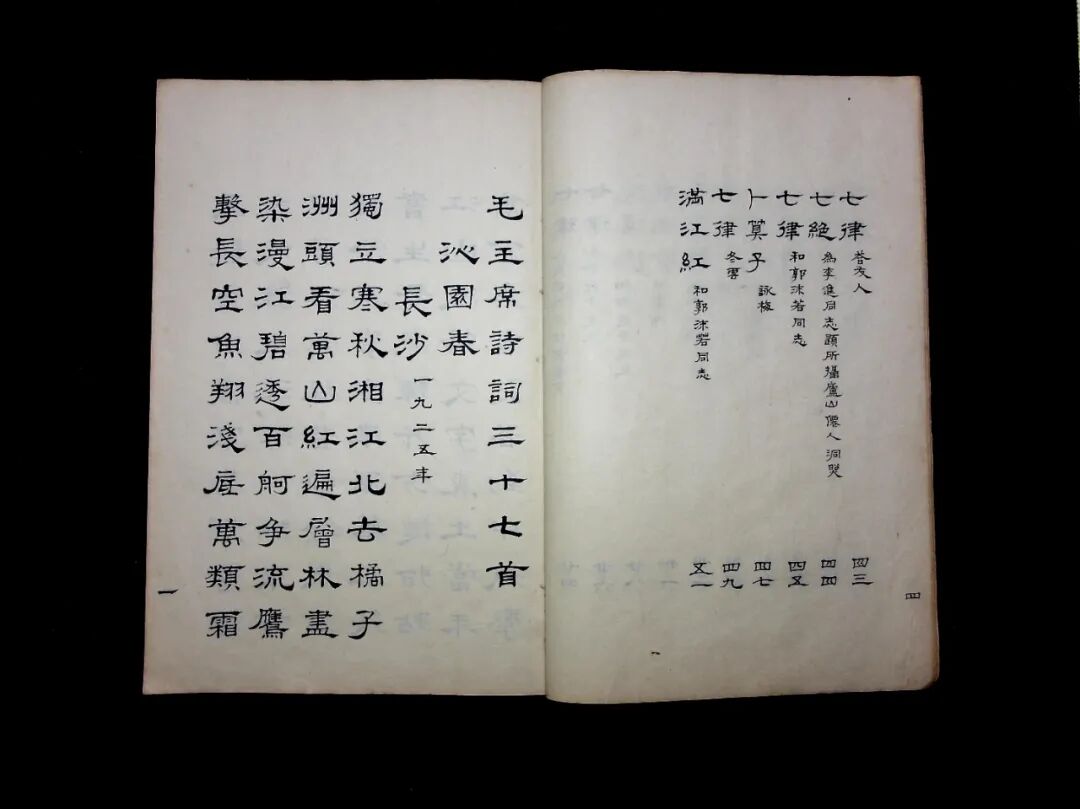 七律 答友人 四三
七絕 為李進同志題所攝廬山僊人洞照 四四
七律 和郭沫若同志 四五
卜算子 詠梅 四七
七律 冬雲 四九
滿江紅 和郭沫若同志 五一
四
毛主席詩詞三十七首
沁園春
長沙 一九二五年
獨立寒秋湘江北去橘子
洲頭看萬山紅遍層林盡
染漫江碧透百舸爭流鷹
擊長空魚翔淺底萬類霜
一